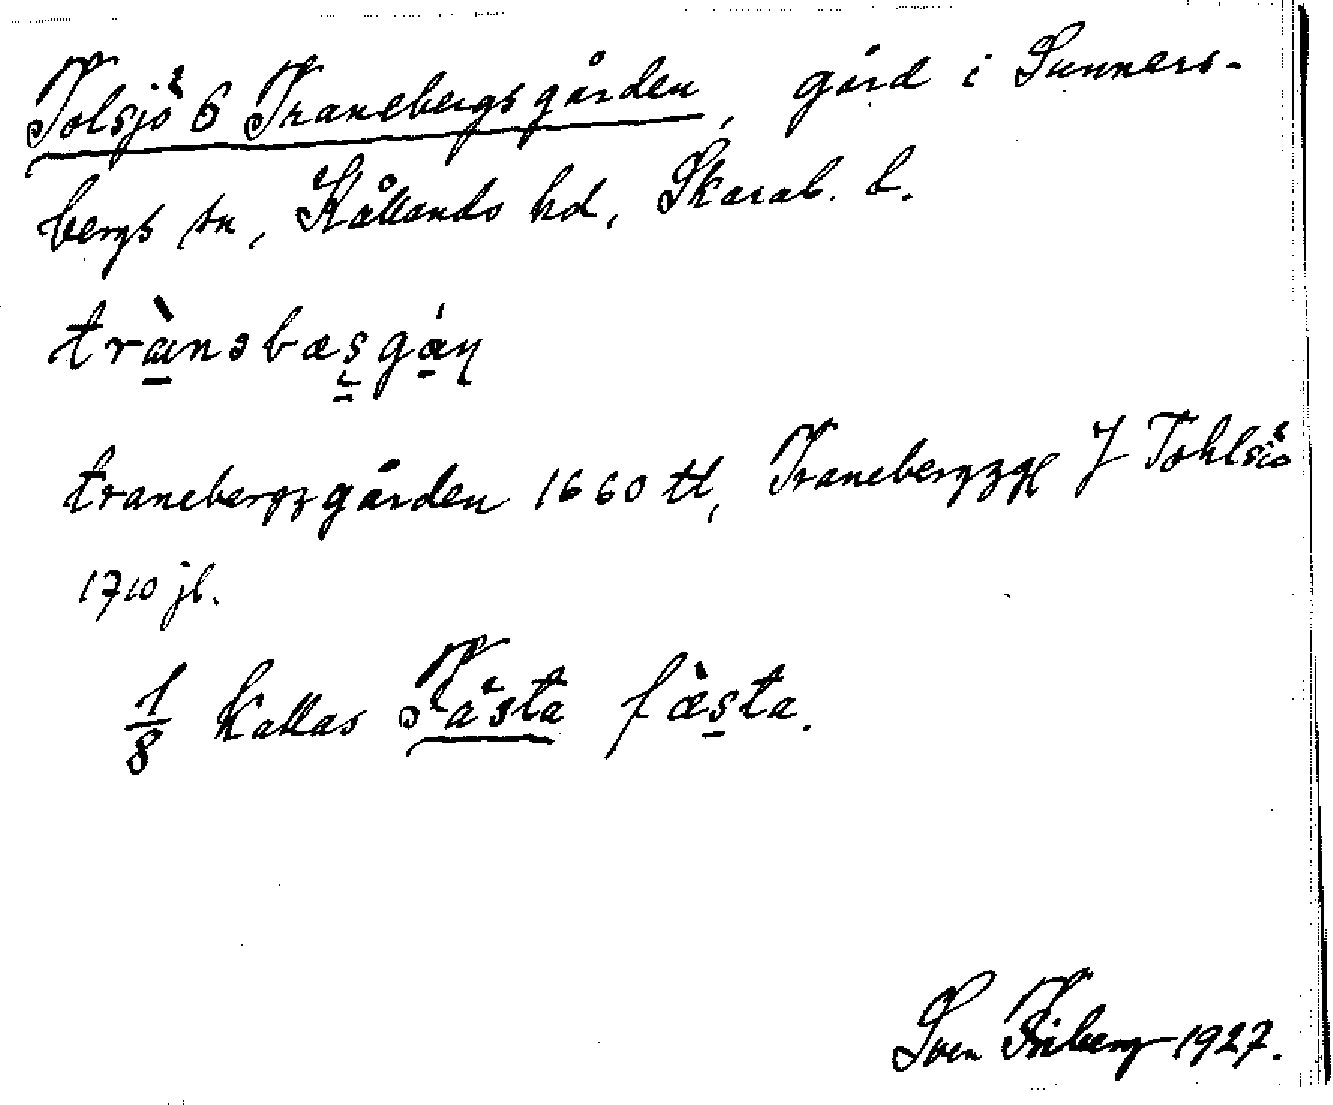 Tolsjö 6 Tranebergsgården, gård i Sunners-
bergs sn, Kållands hd, Skarab. l.
trànəbæşgáɳ
tranebergzgården 1660 tl, Tranebergzgl J Tohlsiö
1710 jb.
1/8 kallas Fästa fæ̀sta.
Sven Friberg 1927.